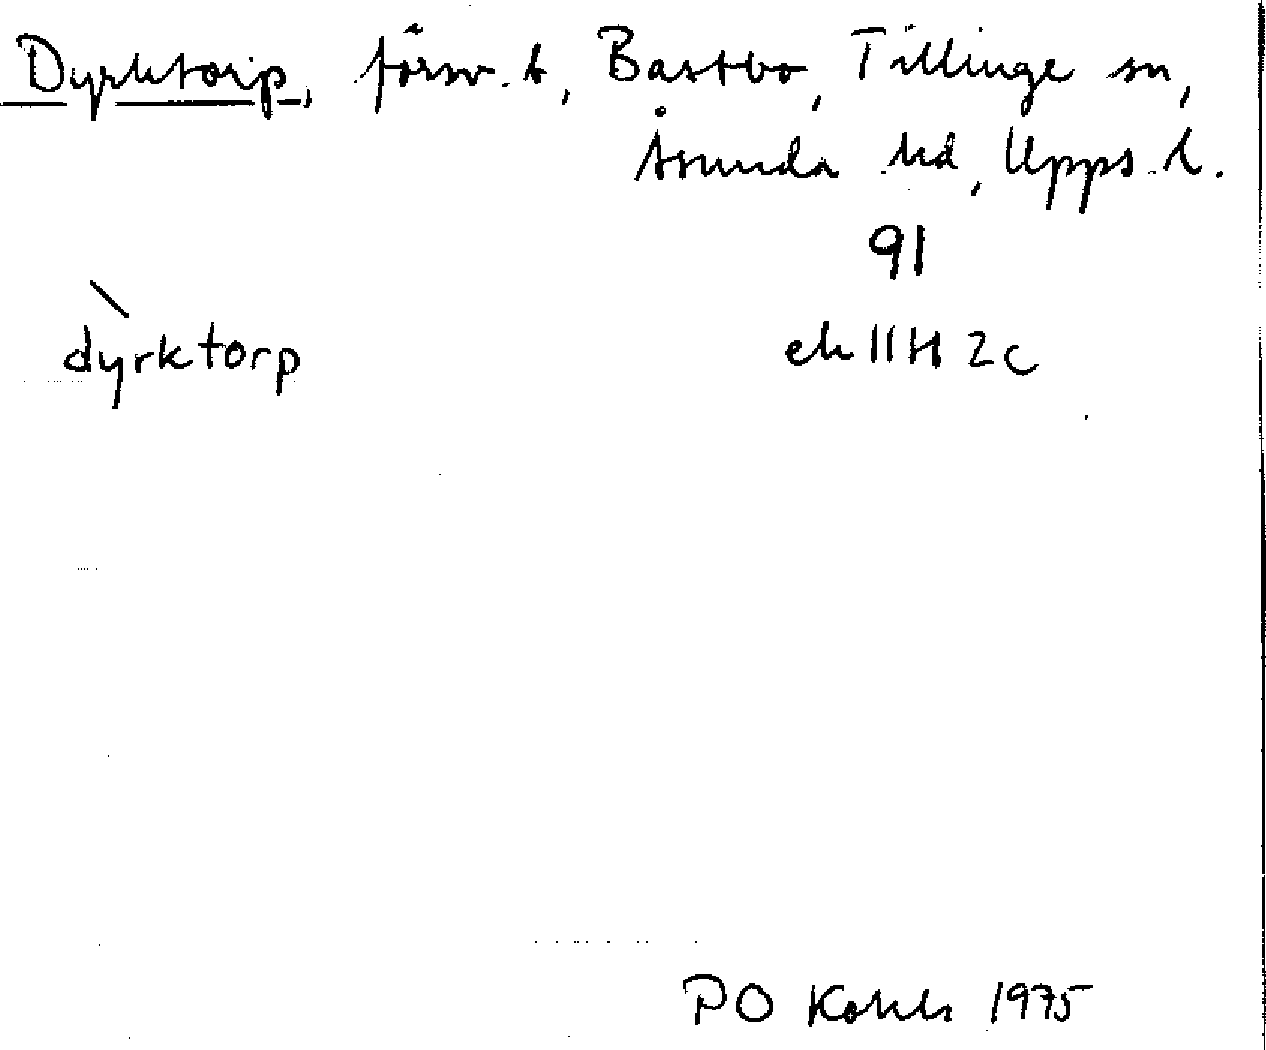 Dyrktorp, försv. t, Bastbo, Tillinge sn,
Åsunda hd, Upps. l.
91
dỳrktorp ek 11H 2c
PO Kohls 1975